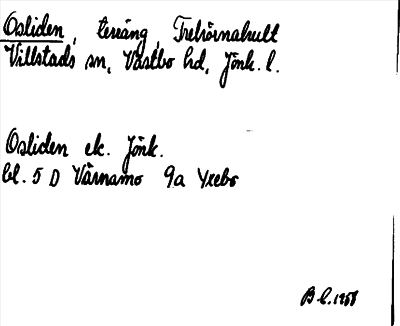 Osliden, terräng, Trehörnahult
Villstads sn, Västbo hd, Jönk. l.
Osliden ek. Jönk.
bl. 5 D Värnamo 9a Yxebo
B L. 1958